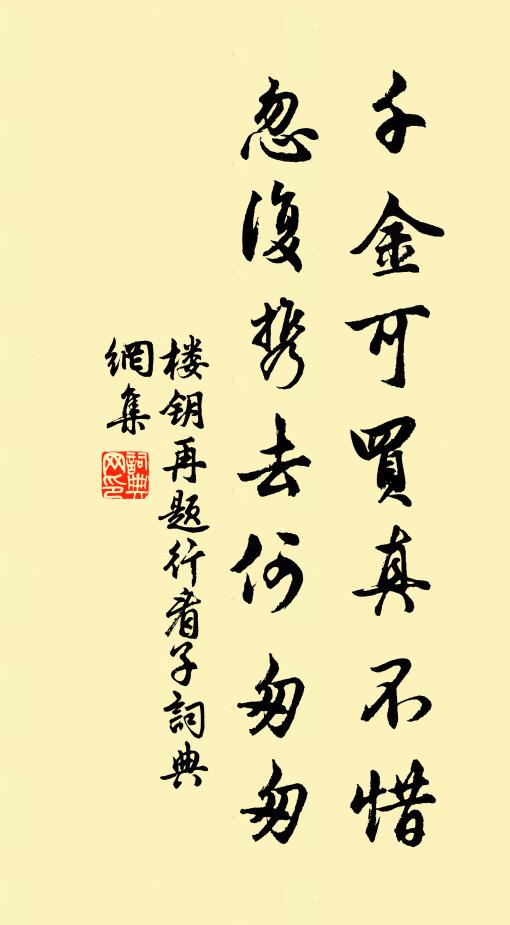 千金可買真不惜
忽復携去何匆匆
楼钥再题行看子詞典
網集
詞典
网印